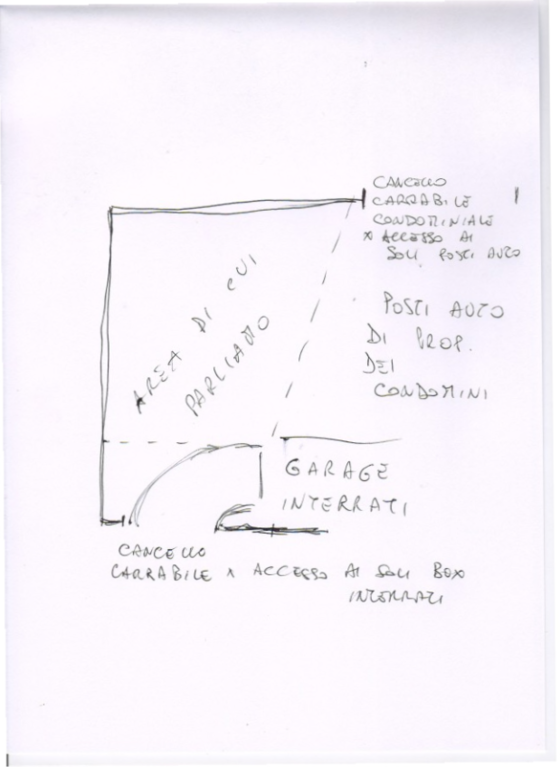 CANCELLO
CARRABILE
CONDOMINIALE
X ACCESSO AI
SOLI POSTI AUTO
AREA DI CUI
PARLIAMO
POSTI AUTO
DI PROP.
DEI
CONDOMINI
GARAGE
INTERRATI
CANCELLO
CARRABILE X ACCESSO AI SOLI BOX
INTERRATI